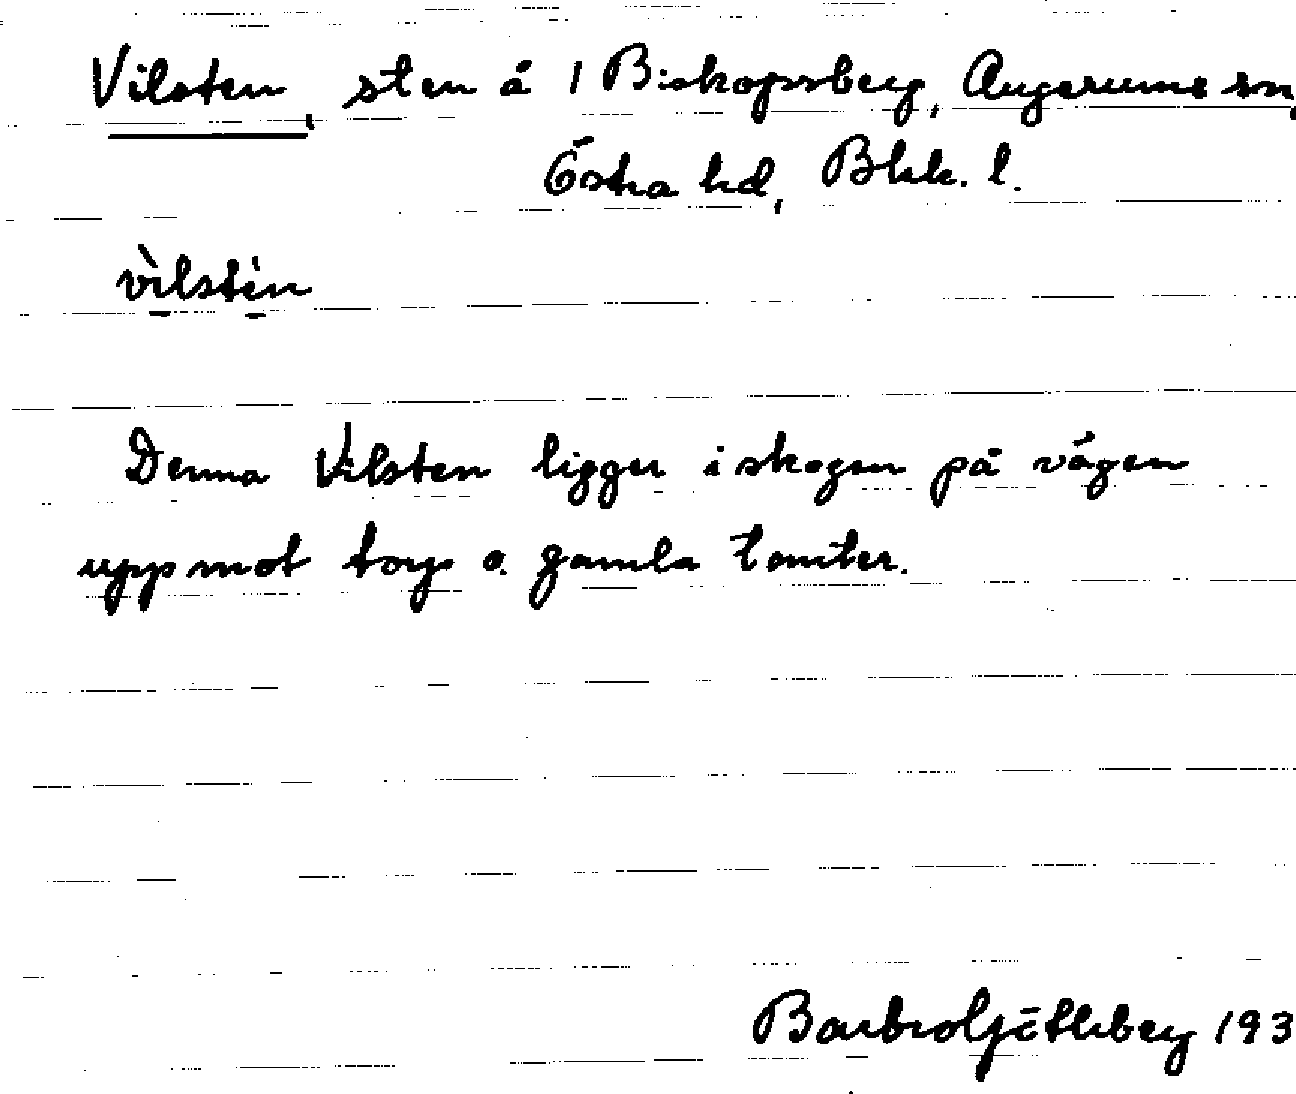 Vilsten, sten å 1 Biskopsberg, Augerums sn,
Östra hd, Blek. l.
vìlstèn
Denna Vilsten ligger i skogen på vägen
upp mot torp o. gamla tomter.
Barbro Götlberg 193